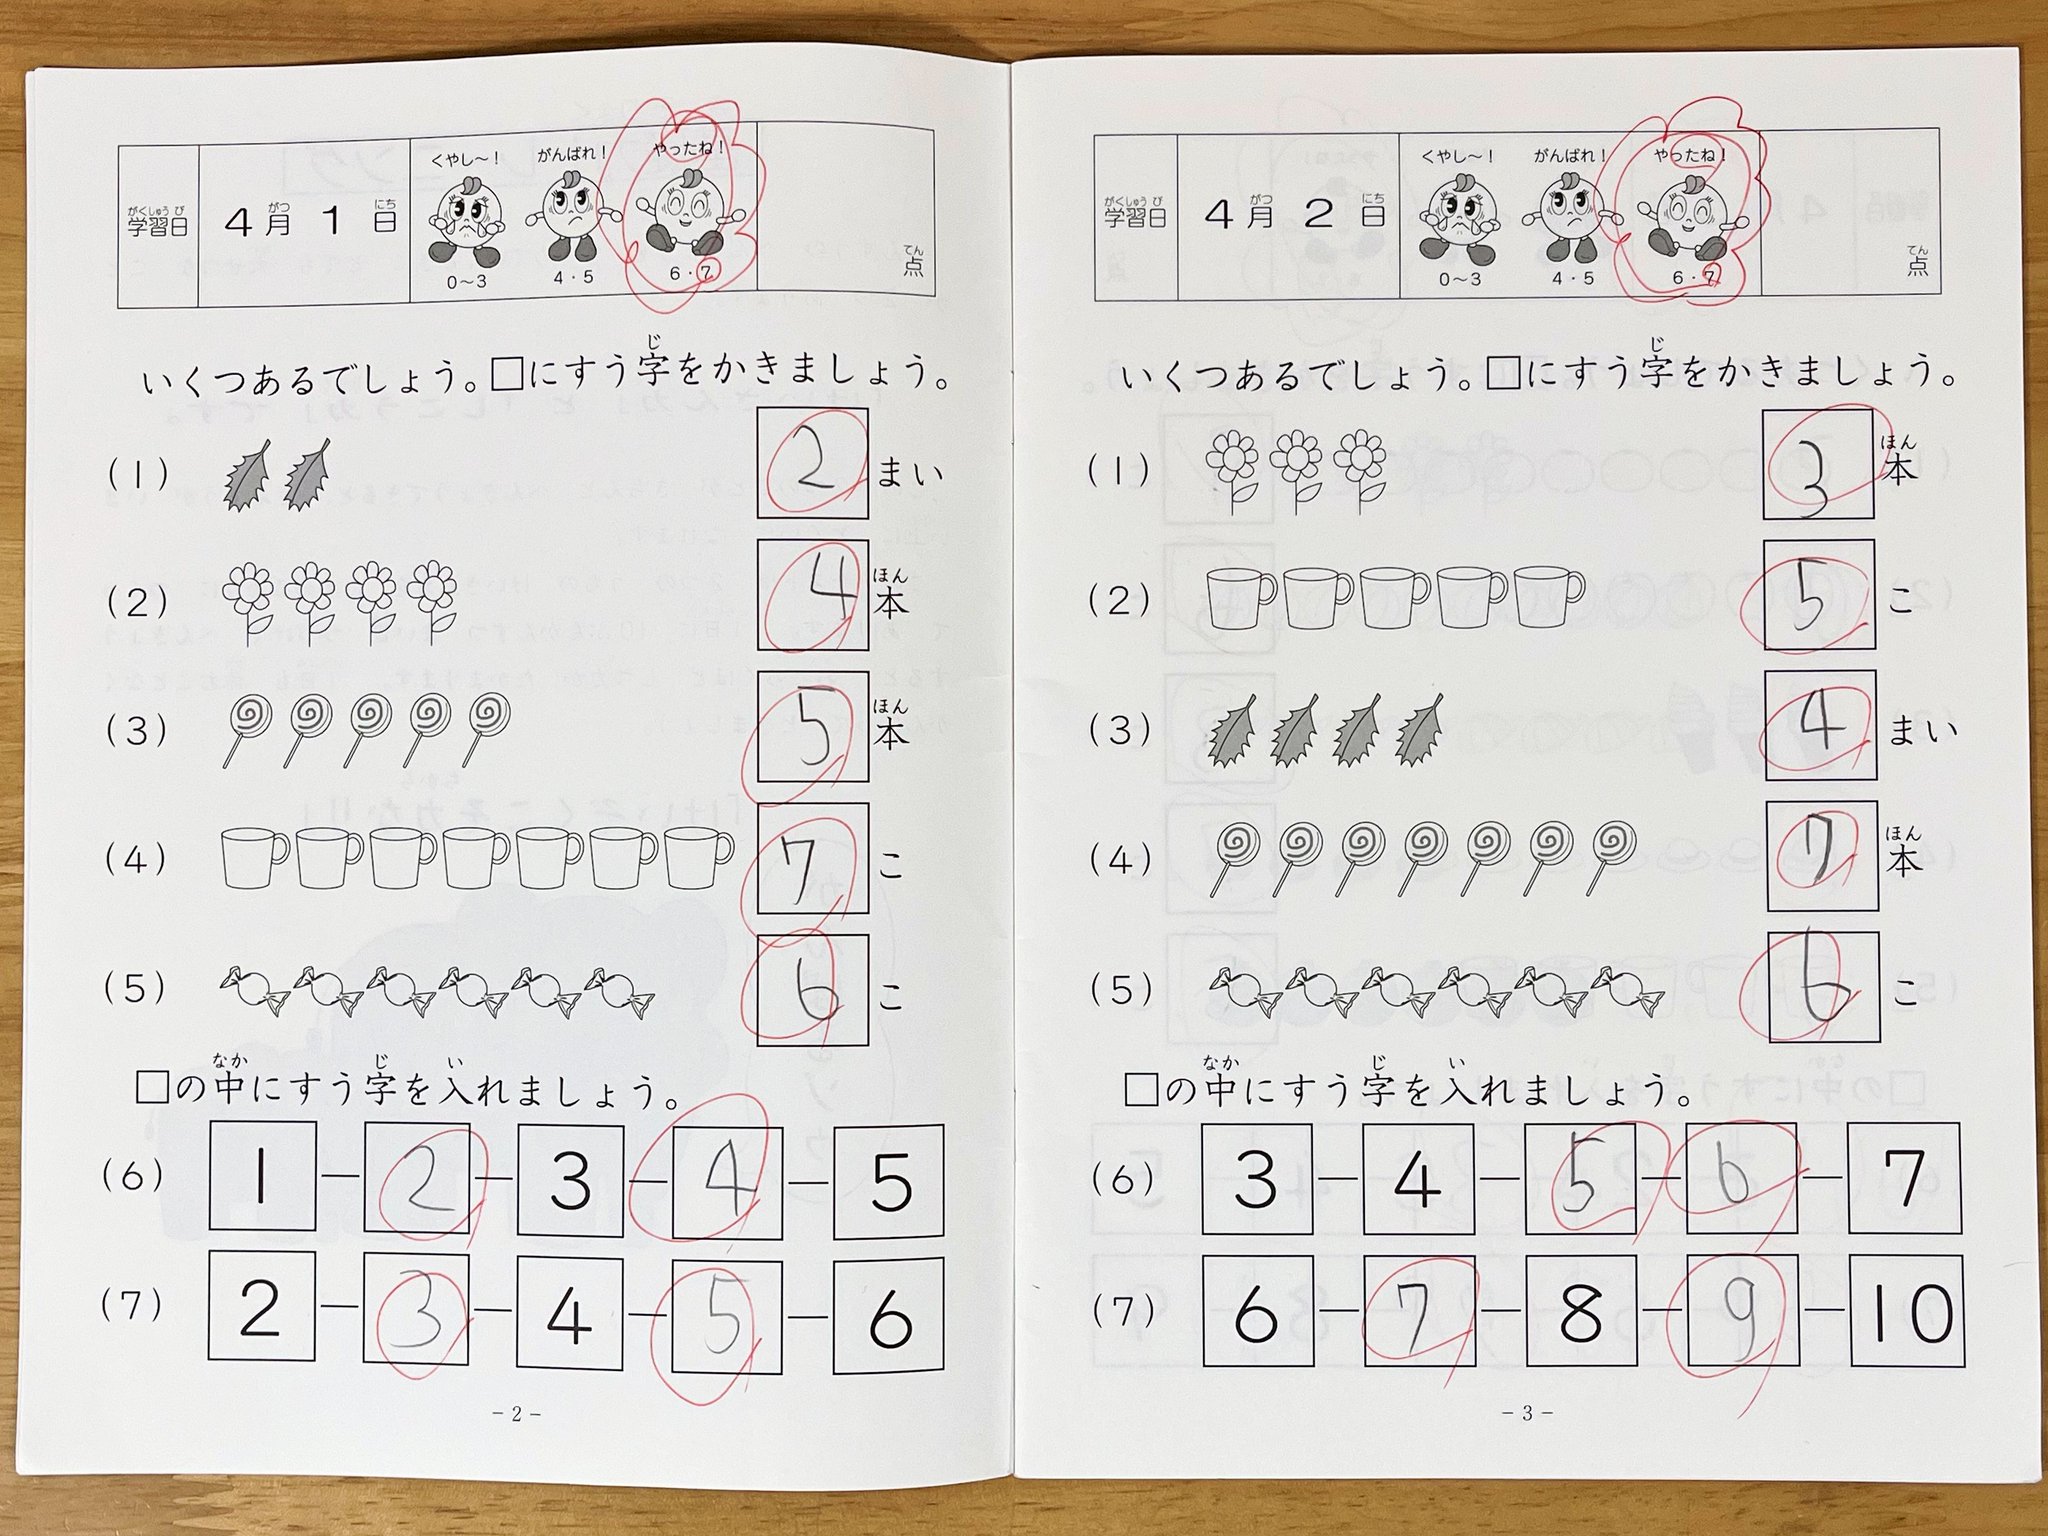 学習日 4月1日 くやし～！ がんばれ！ やったね！
がくしゅうび がつ にち
0～3 4・5 6・7 点
てん
いくつあるでしょう。□にすう字をかきましょう。
じ
(1) 2 まい
(2) 4 本
ほん
(3) 5 本
ほん
(4) 7 こ
(5) 6 こ
□の中にすう字を入れましょう。
なか じ い
(6) 1 － 2 － 3 － 4 － 5
(7) 2 － 3 － 4 － 5 － 6
－2－
学習日 4月2日 くやし～！ がんばれ！ やったね！
がくしゅうび がつ にち
0～3 4・5 6・7 点
てん
いくつあるでしょう。□にすう字をかきましょう。
じ
(1) 3 本
ほん
(2) 5 こ
(3) 4 まい
(4) 7 本
ほん
(5) 6 こ
□の中にすう字を入れましょう。
なか じ い
(6) 3 － 4 － 5 － 6 － 7
(7) 6 － 7 － 8 － 9 － 10
－3－